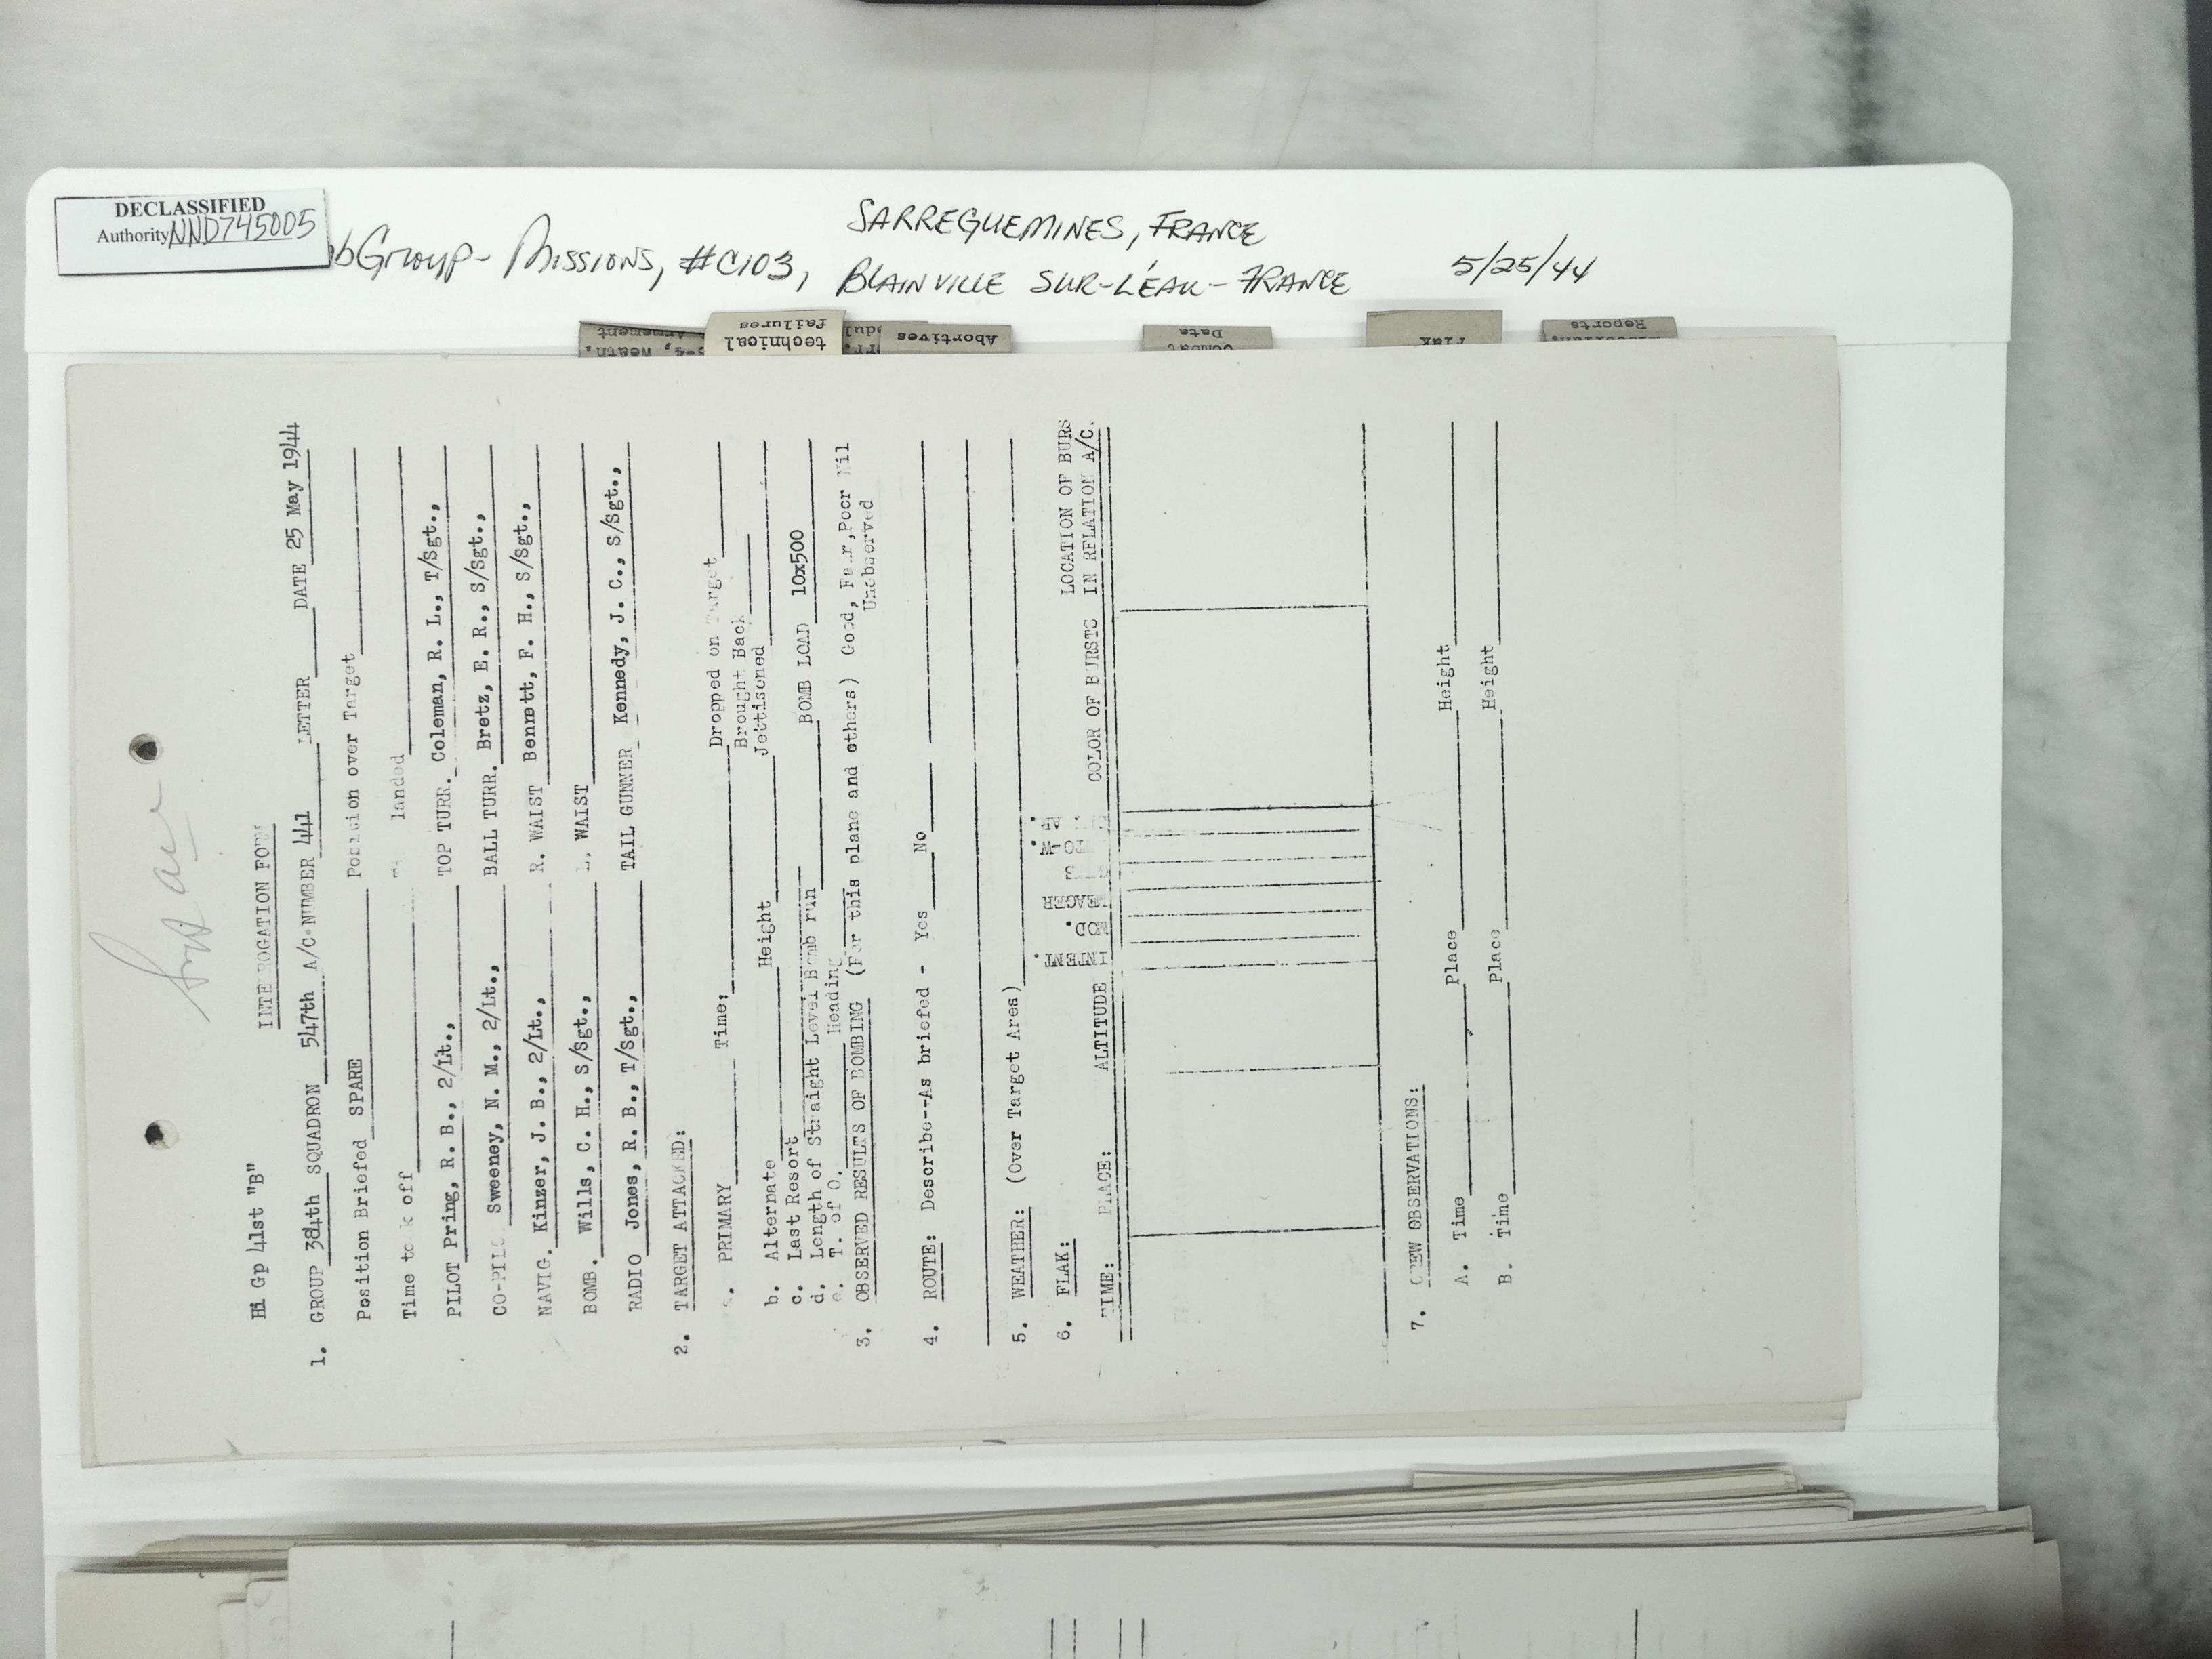 DECLASSIFIED
Authority NND745005
bGroup - Missions, #C103,
SARREGUEMINES, FRANCE
BLAINVILLE SUR-L'EAU - FRANCE
5/25/44
Armement
-4, Weath.
technical
failures
Abortives
Combat
Data
Flak
Reports
Hi Gp 41st "B"
INTERROGATION FORM
1. GROUP 384th SQUADRON 547th A/C NUMBER 441 LETTER DATE 25 May 1944
Position Briefed SPARE Position over Target
Time took off landed
PILOT Pring, R. B., 2/Lt., TOP TURR. Coleman, R. L., T/Sgt.,
CO-PILO Sweeney, N. M., 2/Lt., BALL TURR. Bretz, E. R., S/Sgt.,
NAVIG. Kinzer, J. B., 2/Lt., R. WAIST Bennett, F. H., S/Sgt.,
BOMB. Wills, C. H., S/Sgt., L. WAIST
RADIO Jones, R. B., T/Sgt., TAIL GUNNER Kennedy, J. C., S/Sgt.,
2. TARGET ATTACKED:
a. PRIMARY Time: Dropped on Target
Brought Back
b. Alternate Height Jettisoned
c. Last Resort
d. Length of Straight Level Bomb run BOMB LOAD 10x500
e. T. of O. Heading
3. OBSERVED RESULTS OF BOMBING (For this plane and others) Good, Fair, Poor Nil
Unobserved
4. ROUTE: Describe--As briefed - Yes No
5. WEATHER: (Over Target Area)
6. FLAK:
TIME: PLACE: ALTITUDE INTENT. MOD. MEAGER COLOR OF BURSTS LOCATION OF BURS
IN RELATION A/C.
7. CREW OBSERVATIONS:
A. Time Place Height
B. Time Place Height